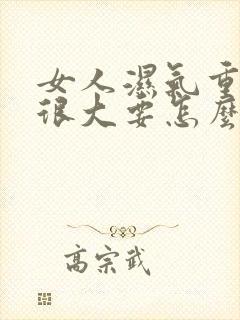 女人濕氣重
很大要怎麼
高宗武